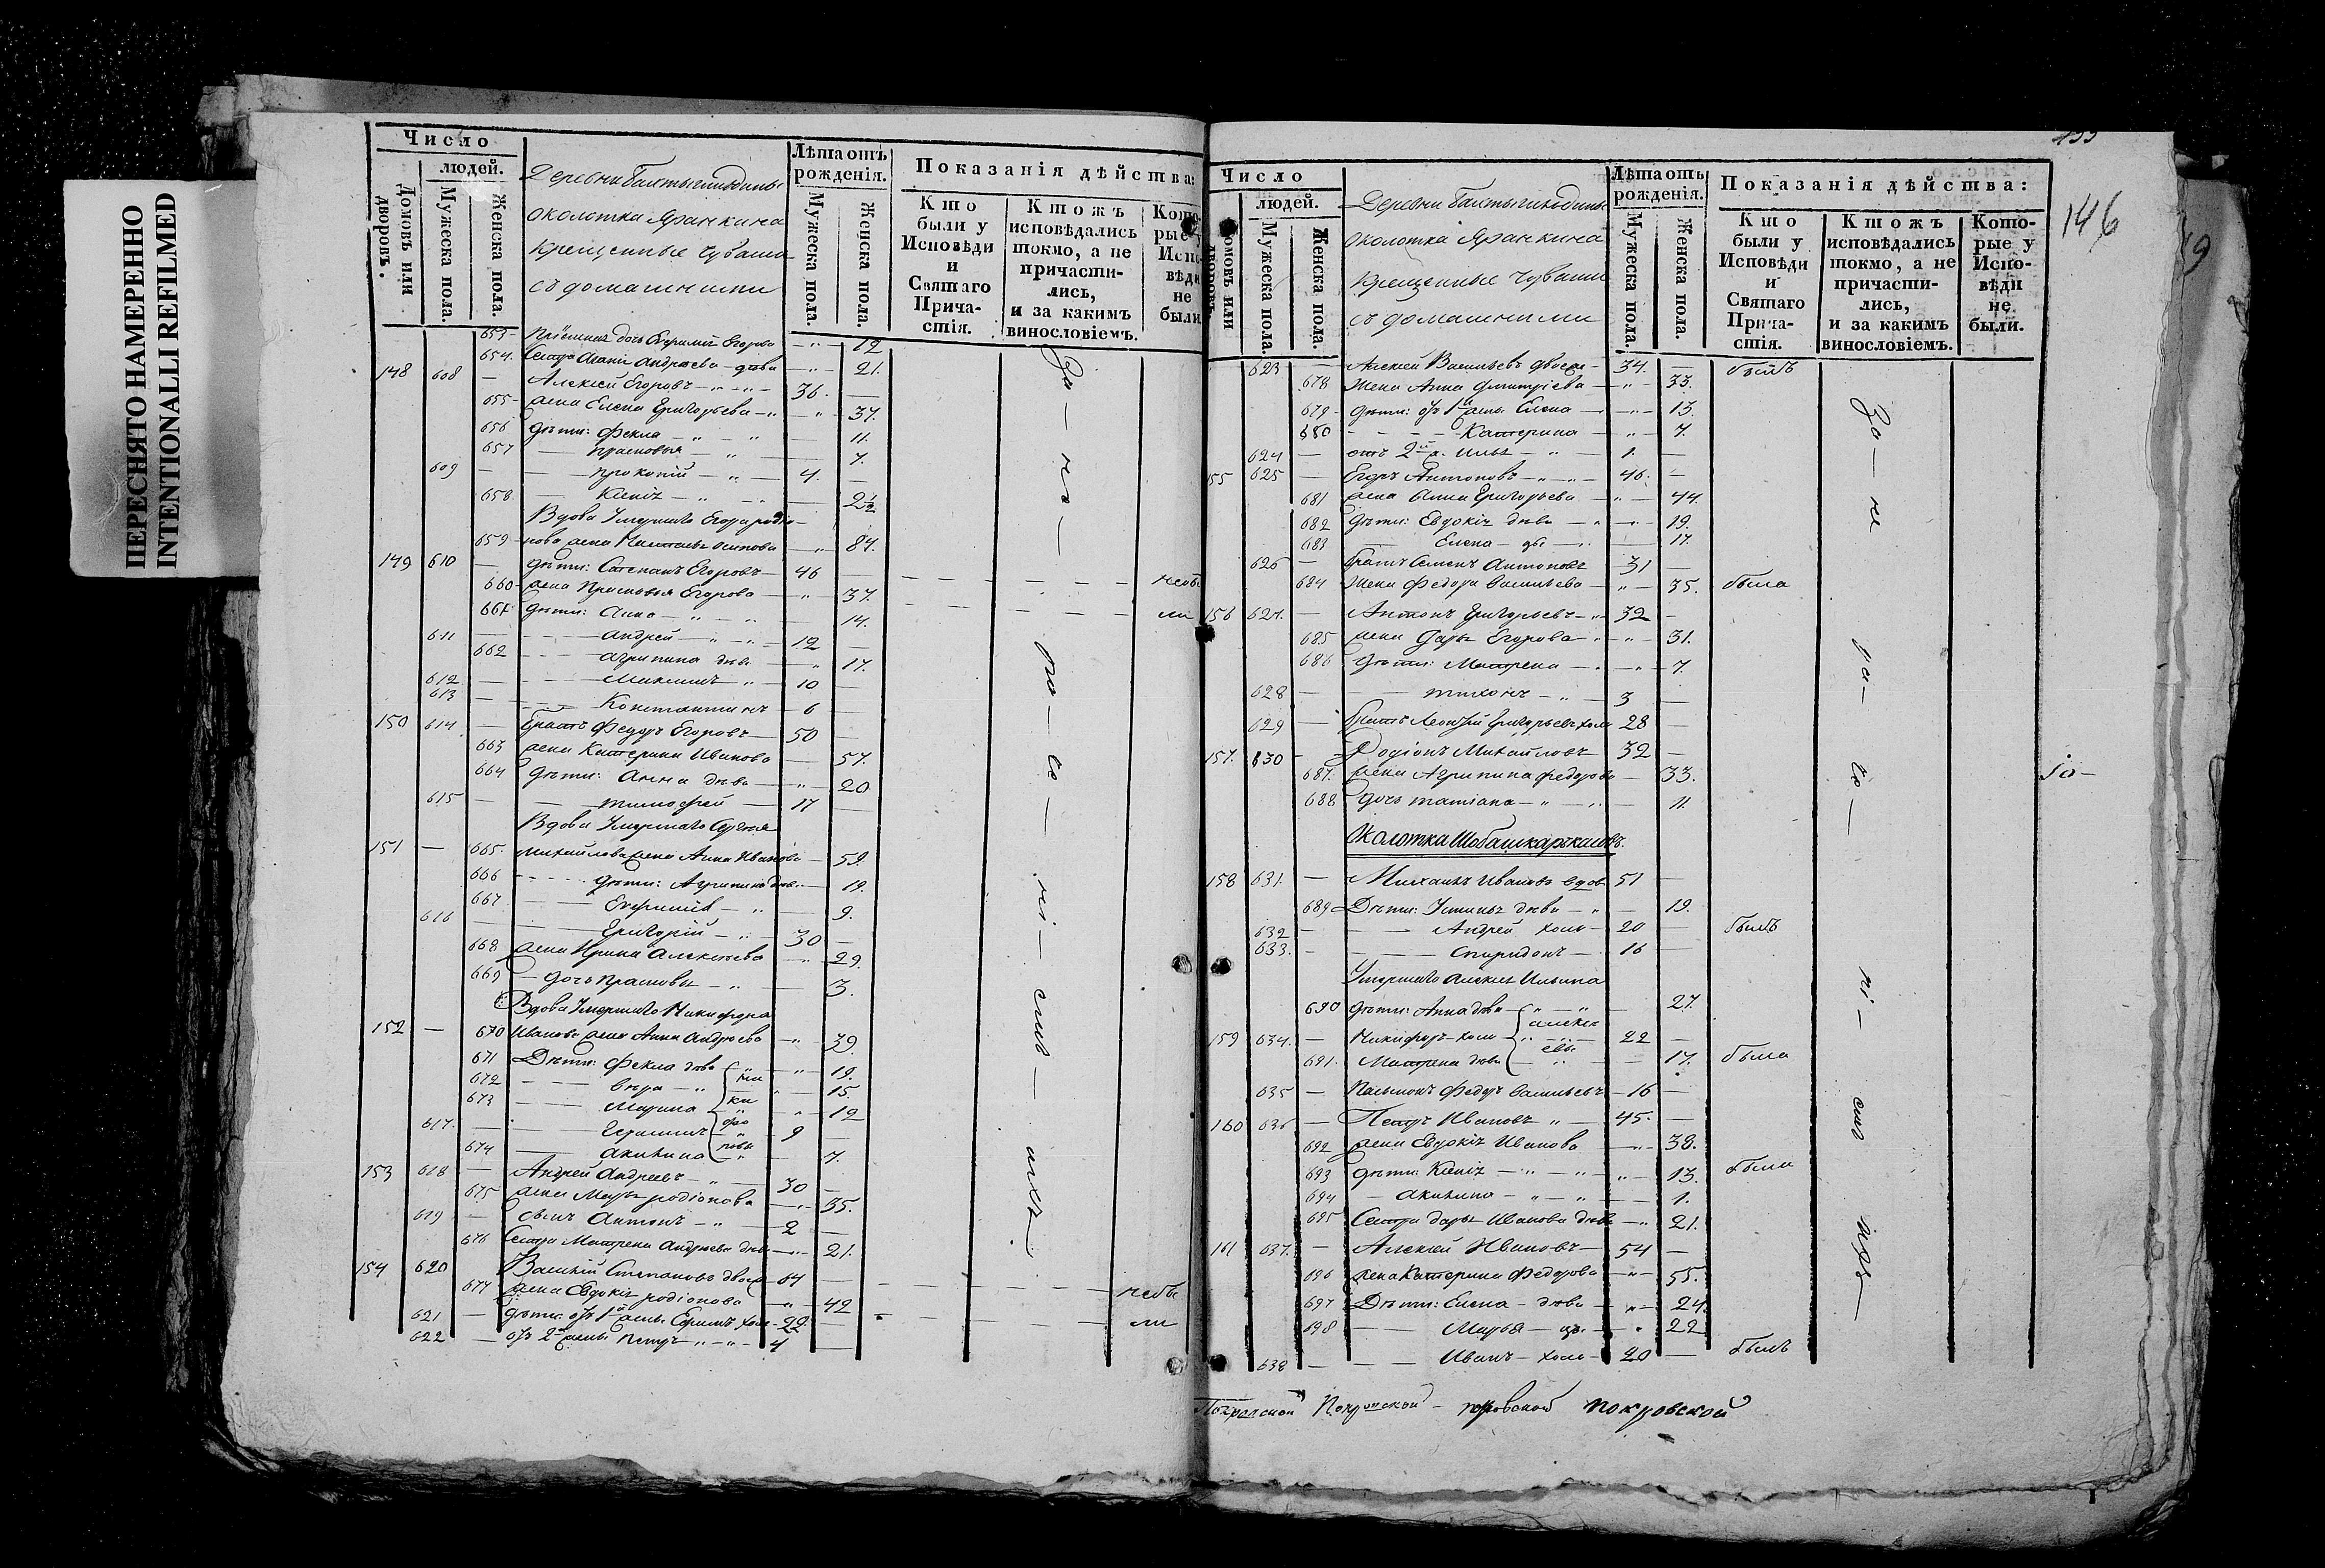 ПЕРЕСНЯТО НАМЕРЕННО
INTENTIONALLI REFILMED
Число
людей.
Домовъ или дворовъ.
Мужеска пола.
Женска пола.
Деревни
околотка Яранкина
крещенные Чуваши
съ домашними
Лѣта отъ рожденія.
Мужеска пола.
Женска пола.
Показанія дѣйства:
Кто были у Исповѣди и Святаго Причастія.
Ктожъ исповѣдались токмо, а не причастились, и за какимъ винословіемъ.
Которые у Исповѣди не были.
653 дочь Егорова 12
654 Сестра Андреева дѣвка 21.
148 608 Алексей Егоровъ 36.
655 жена Елена Григорьева 37.
656 дѣти: Фекла 11.
657 Прасковья 7.
609 Прокопій 4.
658 Ксенія 2½
Вдова Умершаго Егора Родіо-
659 нова жена Осипова 87.
149 610 дѣти: Степанъ Егоровъ 46
660 жена Прасковья Егорова 37. небы
661 дѣти: Анна 14. ли
611 Андрей 12
662 Агрипина дѣв. 17.
612 Максимъ 10
613 Константинъ 6
150 614 братъ Федоръ Егоровъ 50
663 жена Катерина Иванова 57.
664 дѣти: Анна дѣва 20
615 Тимофей 17
Вдова Умершаго
151 665. Михайлова жена Анна Иванова 59.
666 дѣти: Агрипина дѣв. 19.
667 9.
616 Григорій 30
668 жена Ирина Алексѣева 29.
669 дочь Прасковья 3.
Вдова Умершаго Никифора
152 670 Иванова жена Анна Андреева 39.
671 Дѣти: Фекла дѣва 19.
672 Вѣра 15.
673 Марина 12
617 Герасимъ 9
674 Акилина 7.
153 618 Андрей Андреевъ 30
675 жена Марья Родіонова 35.
619 сынъ Антонъ 2
676 Сестра Матрена Андреева дѣв 21.
154 620 Василій Степановъ двоеж 64
677 жена Евдокія Родіонова 42 небы
621 дѣти: отъ 1й жены Ефимъ холо 22. ли
622 отъ 2й жены Петръ 4
За — не — ра — ско — ні — емъ — ихъ —
146
Число
людей.
Домовъ или дворовъ.
Мужеска пола.
Женска пола.
Деревни
околотка Яранкина
Крещенные Чуваши
съ домашними
Лѣта отъ рожденія.
Мужеска пола.
Женска пола.
Показанія дѣйства:
Кто были у Исповѣди и Святаго Причастія.
Ктожъ исповѣдались токмо, а не причастились, и за какимъ винословіемъ.
Которые у Исповѣди не были.
623 Алексей Васильевъ двоеж 34. былъ
678 Жена Анна Дмитріева 33.
679 дѣти: отъ 1й жены Елена 13.
680 Катерина 7.
624 отъ 2й ж. Илья 1.
155 625 Егоръ Антоновъ 46.
681 жена Анна Григорьева 44.
682 дѣти: Евдокія дѣва 19.
683 Елена 17.
626 братъ Семенъ Антоновъ 31
684 Жена Федора Васильева 35. была
156 627. Антонъ Григорьевъ 32
685 жена Дарья Егорова 31.
686 дѣти: Матрена 7.
628 Тихонъ 3
629 братъ Леонтій Григорьевъ холо 28
157. 630 Родіонъ Михайловъ 32
687. жена Агрипина Федорова 33.
688 дочь Татіана 11.
Околотка Шобашкаркасовъ.
158 631. Михаилъ Ивановъ вдов 51
689 Дѣти: Устинья дѣва 19.
632 Андрей холо 20 былъ
633. Спиридонъ 16
Умершаго Алексея Ильина
690 дѣти: Анна дѣва 27.
159 634. Никифоръ холо 22
691. Матрена дѣва 17. была
635 Федоръ Васильевъ 16
160 636 Петръ Ивановъ 45.
692 жена Евдокія Иванова 38.
693 дѣти: Ксенія 13. была
694 Акилина 1.
695 Сестра Дарья Иванова дѣва 21.
161 637. Алексей Ивановъ 54
696 жена Катерина Федорова 55.
697 Дѣти: Елена дѣва 24
698 Марья 22
638 Иванъ холо 20 былъ
Покровской